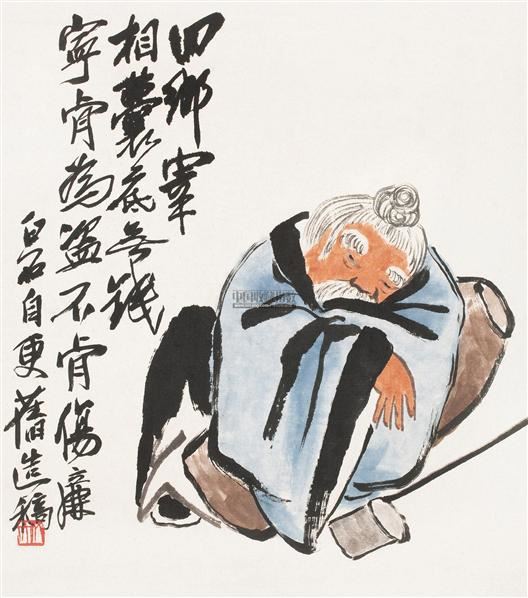 回鄉宰
相囊底無錢
寧肯為盜不肯傷廉
白石自更舊造稿